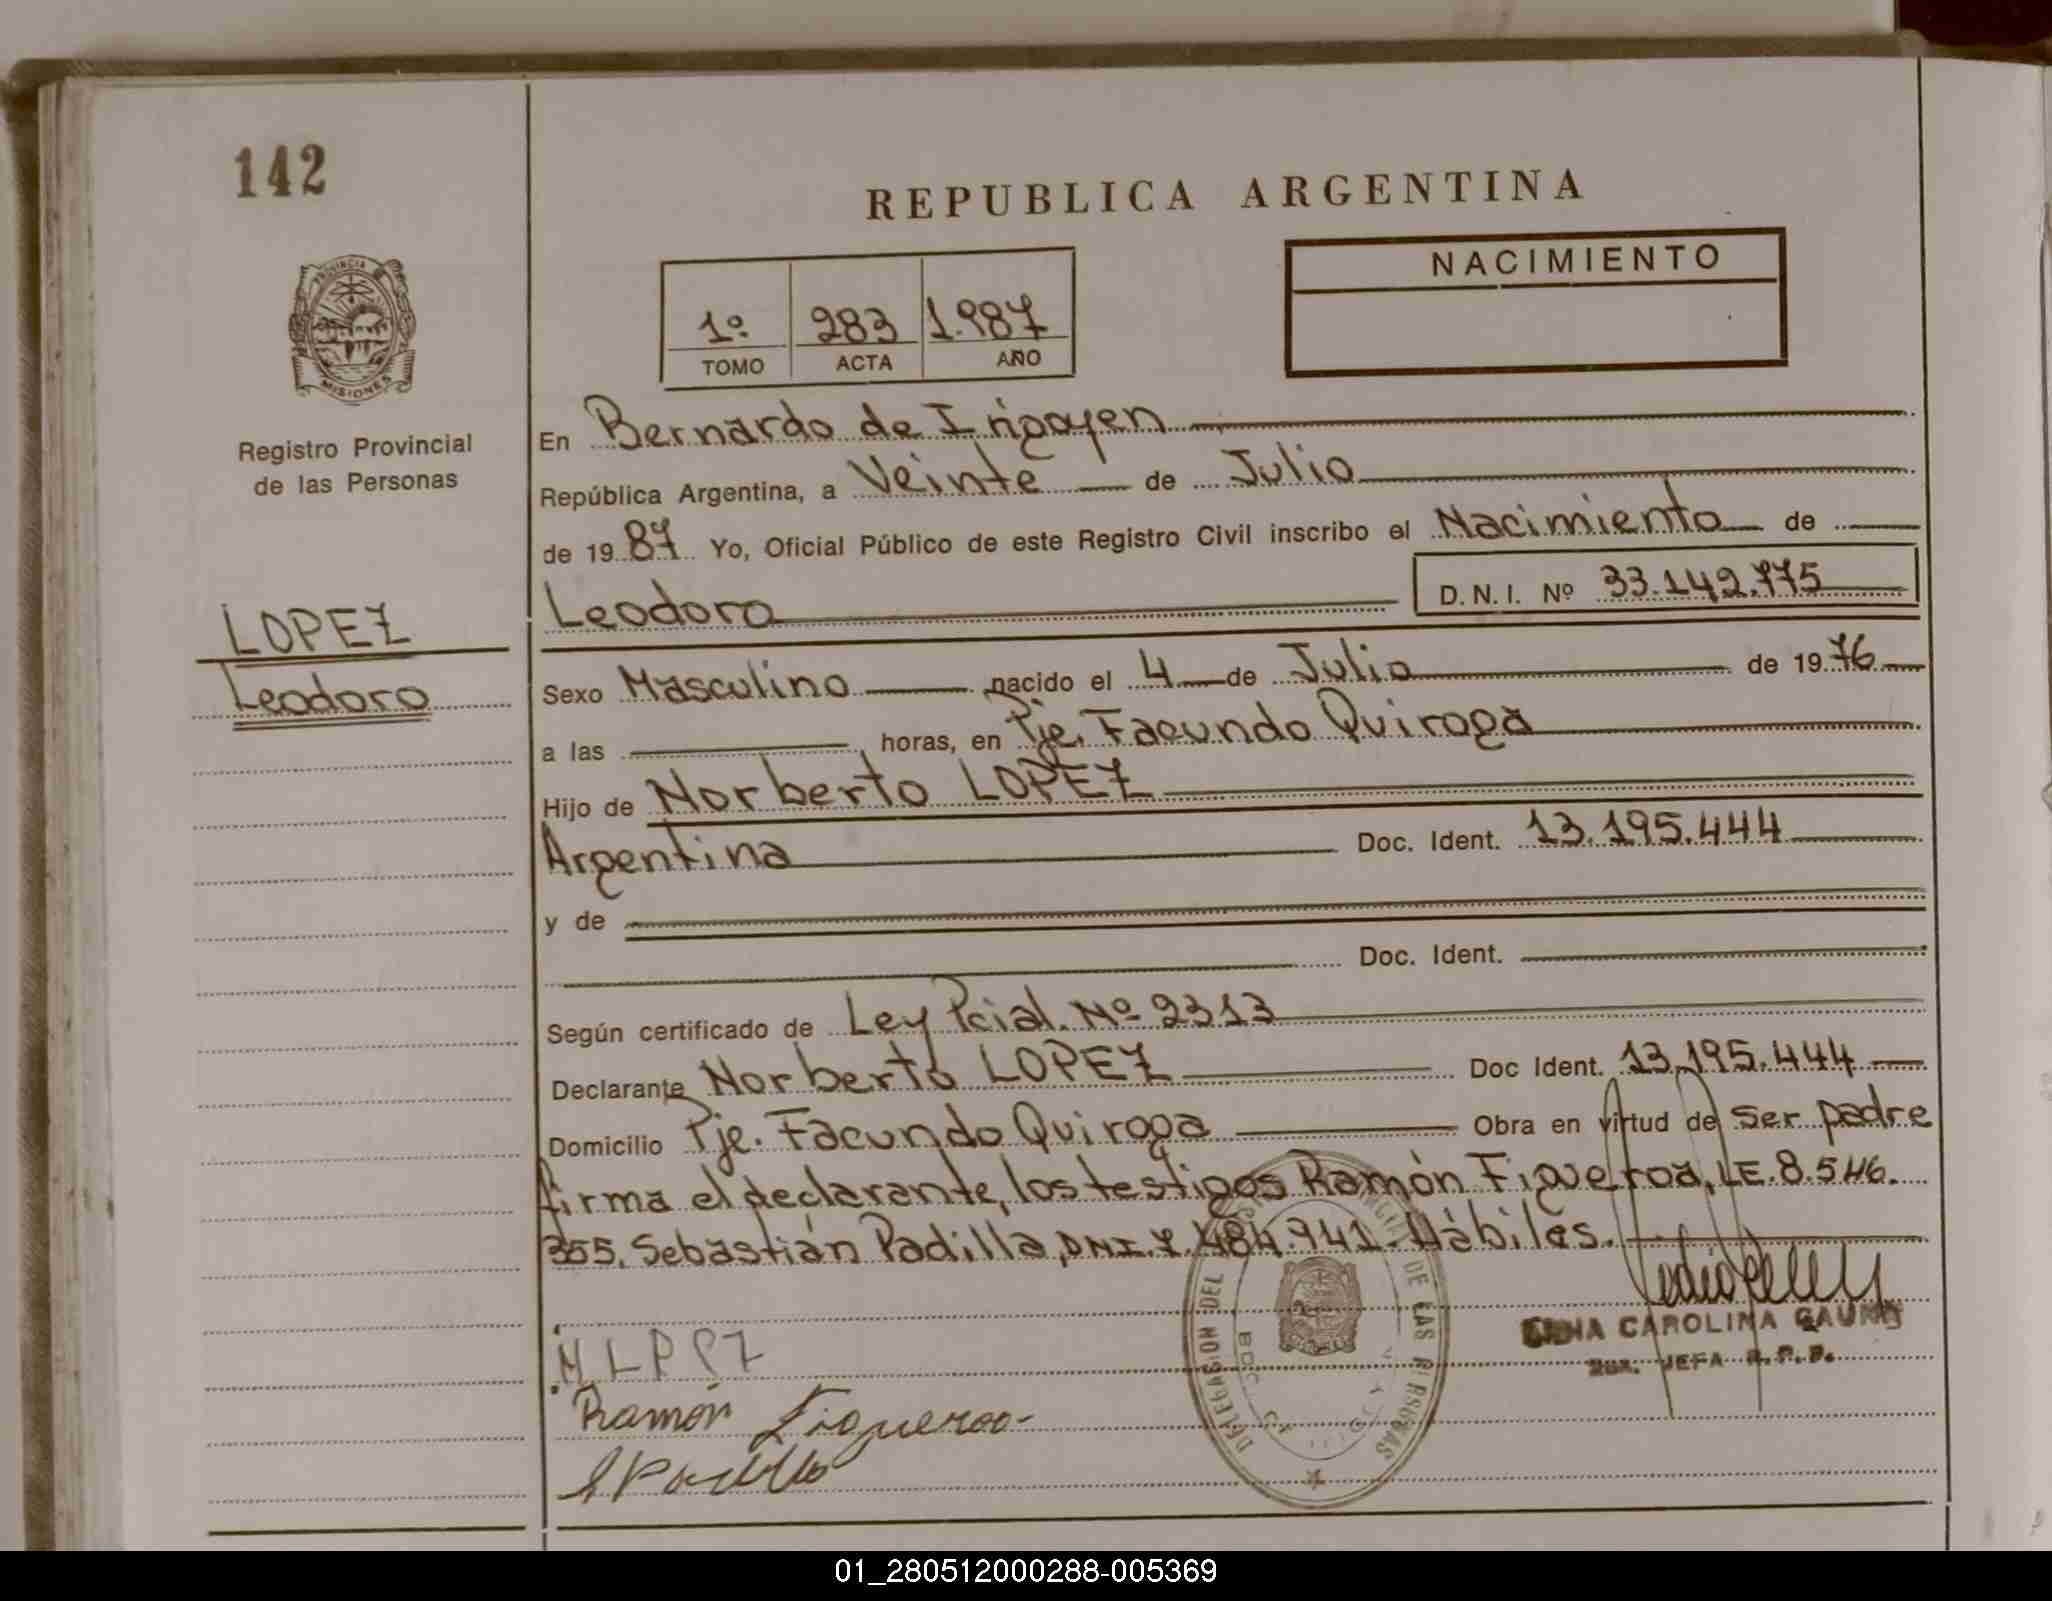 142
REPUBLICA ARGENTINA
NACIMIENTO
1º 283 1.987
TOMO ACTA AÑO
PROVINCIA
MISIONES
Registro Provincial
de las Personas
En Bernardo de Irigoyen
República Argentina, a Veinte de Julio
de 19 87 Yo, Oficial Público de este Registro Civil inscribo el Nacimiento de
Leodoro D.N.I. Nº 33.142.775
LOPEZ
Leodoro
Sexo Masculino nacido el 4 de Julio de 19 76
a las horas, en Pje. Facundo Quiroga
Hijo de Norberto LOPEZ
Argentina Doc. Ident. 13.195.444
y de
Doc. Ident.
Según certificado de Ley Pcial. Nº 2313
Declarante Norberto LOPEZ Doc Ident. 13.195.444
Domicilio Pje. Facundo Quiroga Obra en virtud de ser padre
firma el declarante, los testigos Ramón Figueroa, LE. 8.546.
355. Sebastián Padilla, DNI. 7.484.941. Hábiles.
DELEGACION DEL DE LAS PERSONAS
CAROLINA GAUNA
JEFA R.P.P.
Ramón Figueroa
01_280512000288-005369